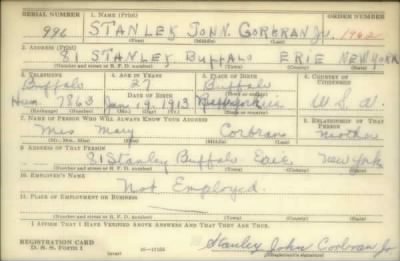 SERIAL NUMBER 1. NAME (Print) ORDER NUMBER
996 STANLEY JOHN CORKRAN Jr. 1962
(First) (Middle) (Last)
2. ADDRESS (Print)
81 STANLEY BUFFALO ERIE NEW YORK
(Number and street or R. F. D. number) (Town) (County) (State)
3. TELEPHONE 4. AGE IN YEARS 5. PLACE OF BIRTH 6. COUNTRY OF CITIZENSHIP
Buffalo 27 Buffalo
DATE OF BIRTH
Hum. 7863 Jan 19, 1913 U. S. A.
(Exchange) (Number) (Mo.) (Day) (Yr.) (State or country)
7. NAME OF PERSON WHO WILL ALWAYS KNOW YOUR ADDRESS 8. RELATIONSHIP OF THAT PERSON
Mrs Mary Corkran Mother
(Mr., Mrs., Miss) (First) (Middle) (Last)
9. ADDRESS OF THAT PERSON
81 Stanley Buffalo Erie New York
(Number and street or R. F. D. number) (Town) (County) (State)
10. EMPLOYER'S NAME
Not Employed.
11. PLACE OF EMPLOYMENT OR BUSINESS
(Number and street or R. F. D. number) (Town) (County) (State)
I AFFIRM THAT I HAVE VERIFIED ABOVE ANSWERS AND THAT THEY ARE TRUE.
REGISTRATION CARD
D. S. S. FORM 1 16—17105 Stanley John Corkran Jr
(Registrant's signature)